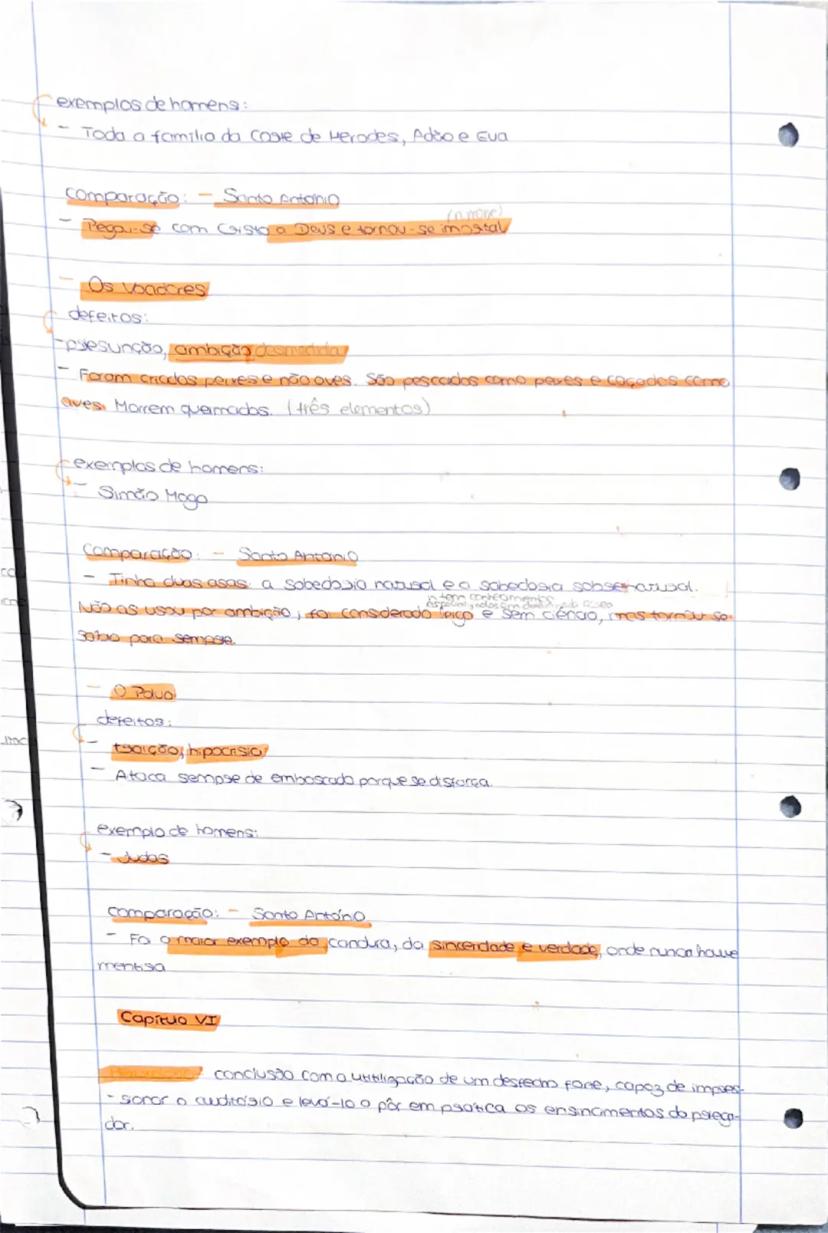 exemplos de homens:
- Toda a família da Casa de Herodes, Adão e Eva
comparação: - Santo António
(n morre)
- Pegou-se com Cristo a Deus e tornou-se imortal
- Os Voadores
defeitos:
- presunção, ambição desmedida
- Foram criados peixes e não aves. São pescados como peixes e caçados como
aves. Morrem queimados. (três elementos)
exemplos de homens:
- Simão Mago
comparação: - Santo António
- Tinha duas asas: a sabedoria natural e a sabedoria sobrenatural.
n tem conhecimento
Não as usou por ambição, foi considerado leigo e sem ciência, mas tornou-se
sábio para sempre.
- O Polvo
defeitos:
- traição, hipocrisia
- Ataca sempre de emboscada porque se disfarça.
exemplo de homens:
- Judas
comparação: - Santo António
- Foi o maior exemplo da candura, da sinceridade e verdade, onde nunca houve
mentira
Capítulo VI
conclusão com a utitiligação de um desfecho forte, capaz de impres-
- sionar o auditório e levá-lo a pôr em prática os ensinamentos do prega-
dor.